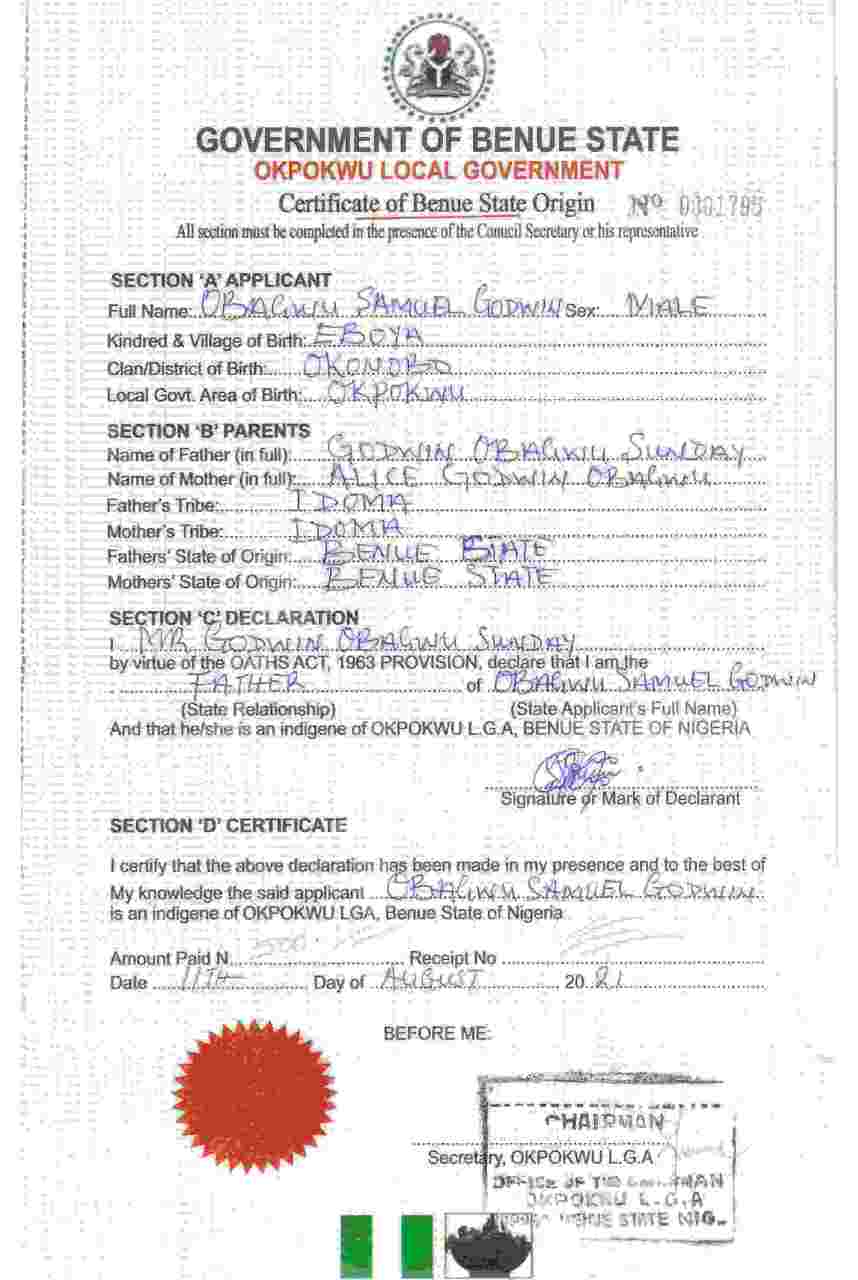 GOVERNMENT OF BENUE STATE
OKPOKWU LOCAL GOVERNMENT
Certificate of Benue State Origin Nº 0001795
All section must be completed in the presence of the Conucil Secretary or his representative
SECTION 'A' APPLICANT
Full Name: OBAGWU SAMUEL GODWIN Sex: MALE
Kindred & Village of Birth: EBOYA
Clan/District of Birth: OKONOBO
Local Govt. Area of Birth: OKPOKWU
SECTION 'B' PARENTS
Name of Father (in full): GODWIN OBAGWU SUNDAY
Name of Mother (in full): ALICE GODWIN OBAGWU
Father's Tribe: IDOMA
Mother's Tribe: IDOMA
Fathers' State of Origin: BENUE STATE
Mothers' State of Origin: BENUE STATE
SECTION 'C' DECLARATION
I MR GODWIN OBAGWU SUNDAY
by virtue of the OATHS ACT, 1963 PROVISION, declare that I am the
FATHER of OBAGWU SAMUEL GODWIN
(State Relationship) (State Applicant's Full Name)
And that he/she is an indigene of OKPOKWU L.G.A, BENUE STATE OF NIGERIA
Signature or Mark of Declarant
SECTION 'D' CERTIFICATE
I certify that the above declaration has been made in my presence and to the best of
My knowledge the said applicant OBAGWU SAMUEL GODWIN
is an indigene of OKPOKWU LGA, Benue State of Nigeria
Amount Paid N 500 Receipt No
Date 11TH Day of AUGUST 20 21
BEFORE ME:
CHAIRMAN
Secretary, OKPOKWU L.G.A
OFFICE OF THE CHAIRMAN
OKPOKWU L.G.A
BENUE STATE NIG.